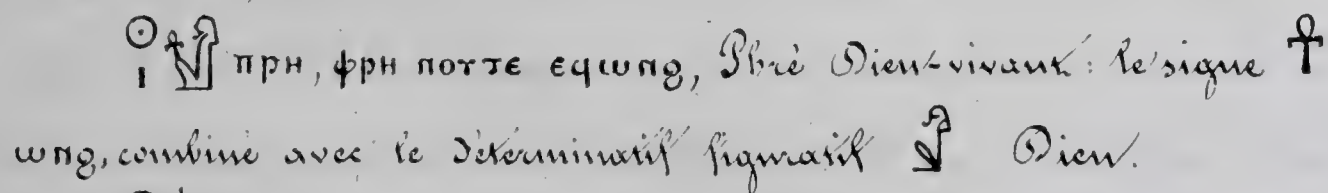 𓇳𓏤 𓋹𓀭 ⲡⲣⲏ, ⲫⲣⲏ ⲛⲟⲩⲧⲉ ⲉϥⲱⲛϩ, Phrè Dieu-vivant: le signe 𓋹
ⲱⲛϩ, combiné avec le déterminatif figuratif 𓀭 Dieu.